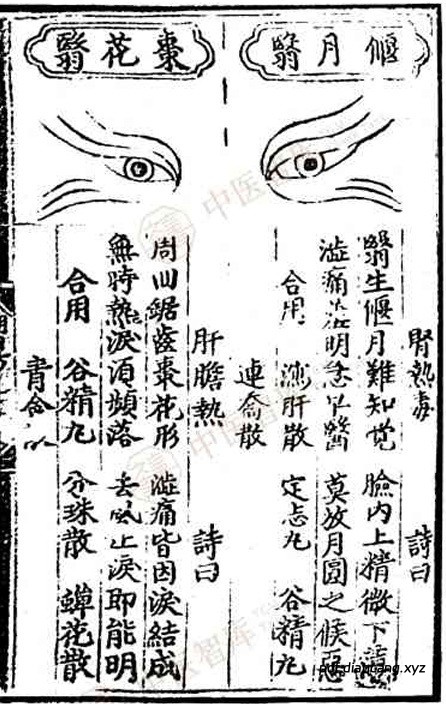 偃月翳
腎熱毒 詩曰
翳生偃月難知覺 臉内上精微下
澁痛 明急早醫 莫放月圓之候惡
合用 肝散 定志丸 谷精丸
連喬散
棗花翳
肝膽熱 詩曰
周回鋸齒棗花形 澁痛皆因淚結成
無時熱淚湏頻落 去風止淚即能明
合用 谷精丸 分珠散 蟬花散
青
中医 智库
pdf.dianxiang.xyz